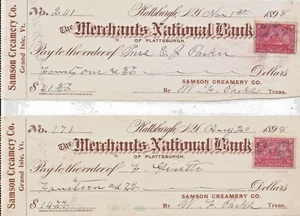 Samson Creamery Co.
Grand Isle, Vt.
No. 241 Plattsburgh, N.Y. Nov 1st 1898
The Merchants National Bank
OF PLATTSBURGH.
Pay to the order of Mrs E. S. Parker
Dollars
SAMSON CREAMERY CO.
By W. F. Parks Treas.
Samson Creamery Co.
Grand Isle, Vt.
No. 171 Plattsburgh, N.Y. Aug 20 1898
The Merchants National Bank
OF PLATTSBURGH.
Pay to the order of
Fourteen and Dollars
SAMSON CREAMERY CO.
By W. F. Parks Treas.